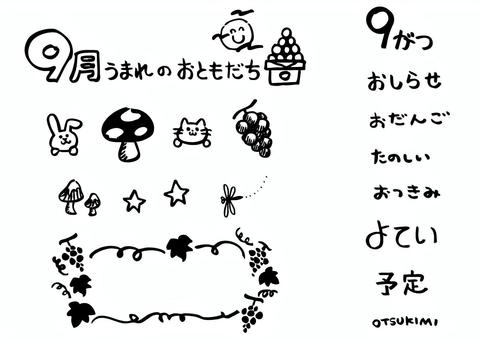 9月うまれのおともだち
9がつ
おしらせ
おだんご
たのしい
おつきみ
よてい
予定
OTSUKIMI